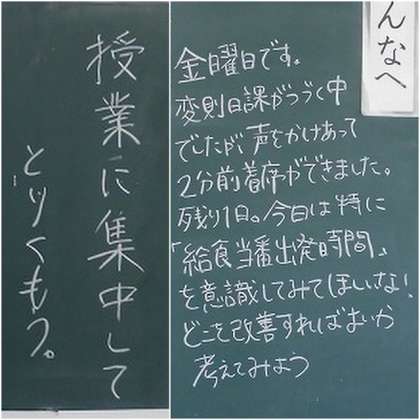 授業に集中して
とりくもう。
んなへ
金曜日です。
変則日課がつづく中
でしたが、声をかけあって
2分前着席ができました。
残り1日。今日は特に
「給食当番出発時間」
を意識してみてほしいな！
どこを改善すればよいか
考えてみよう